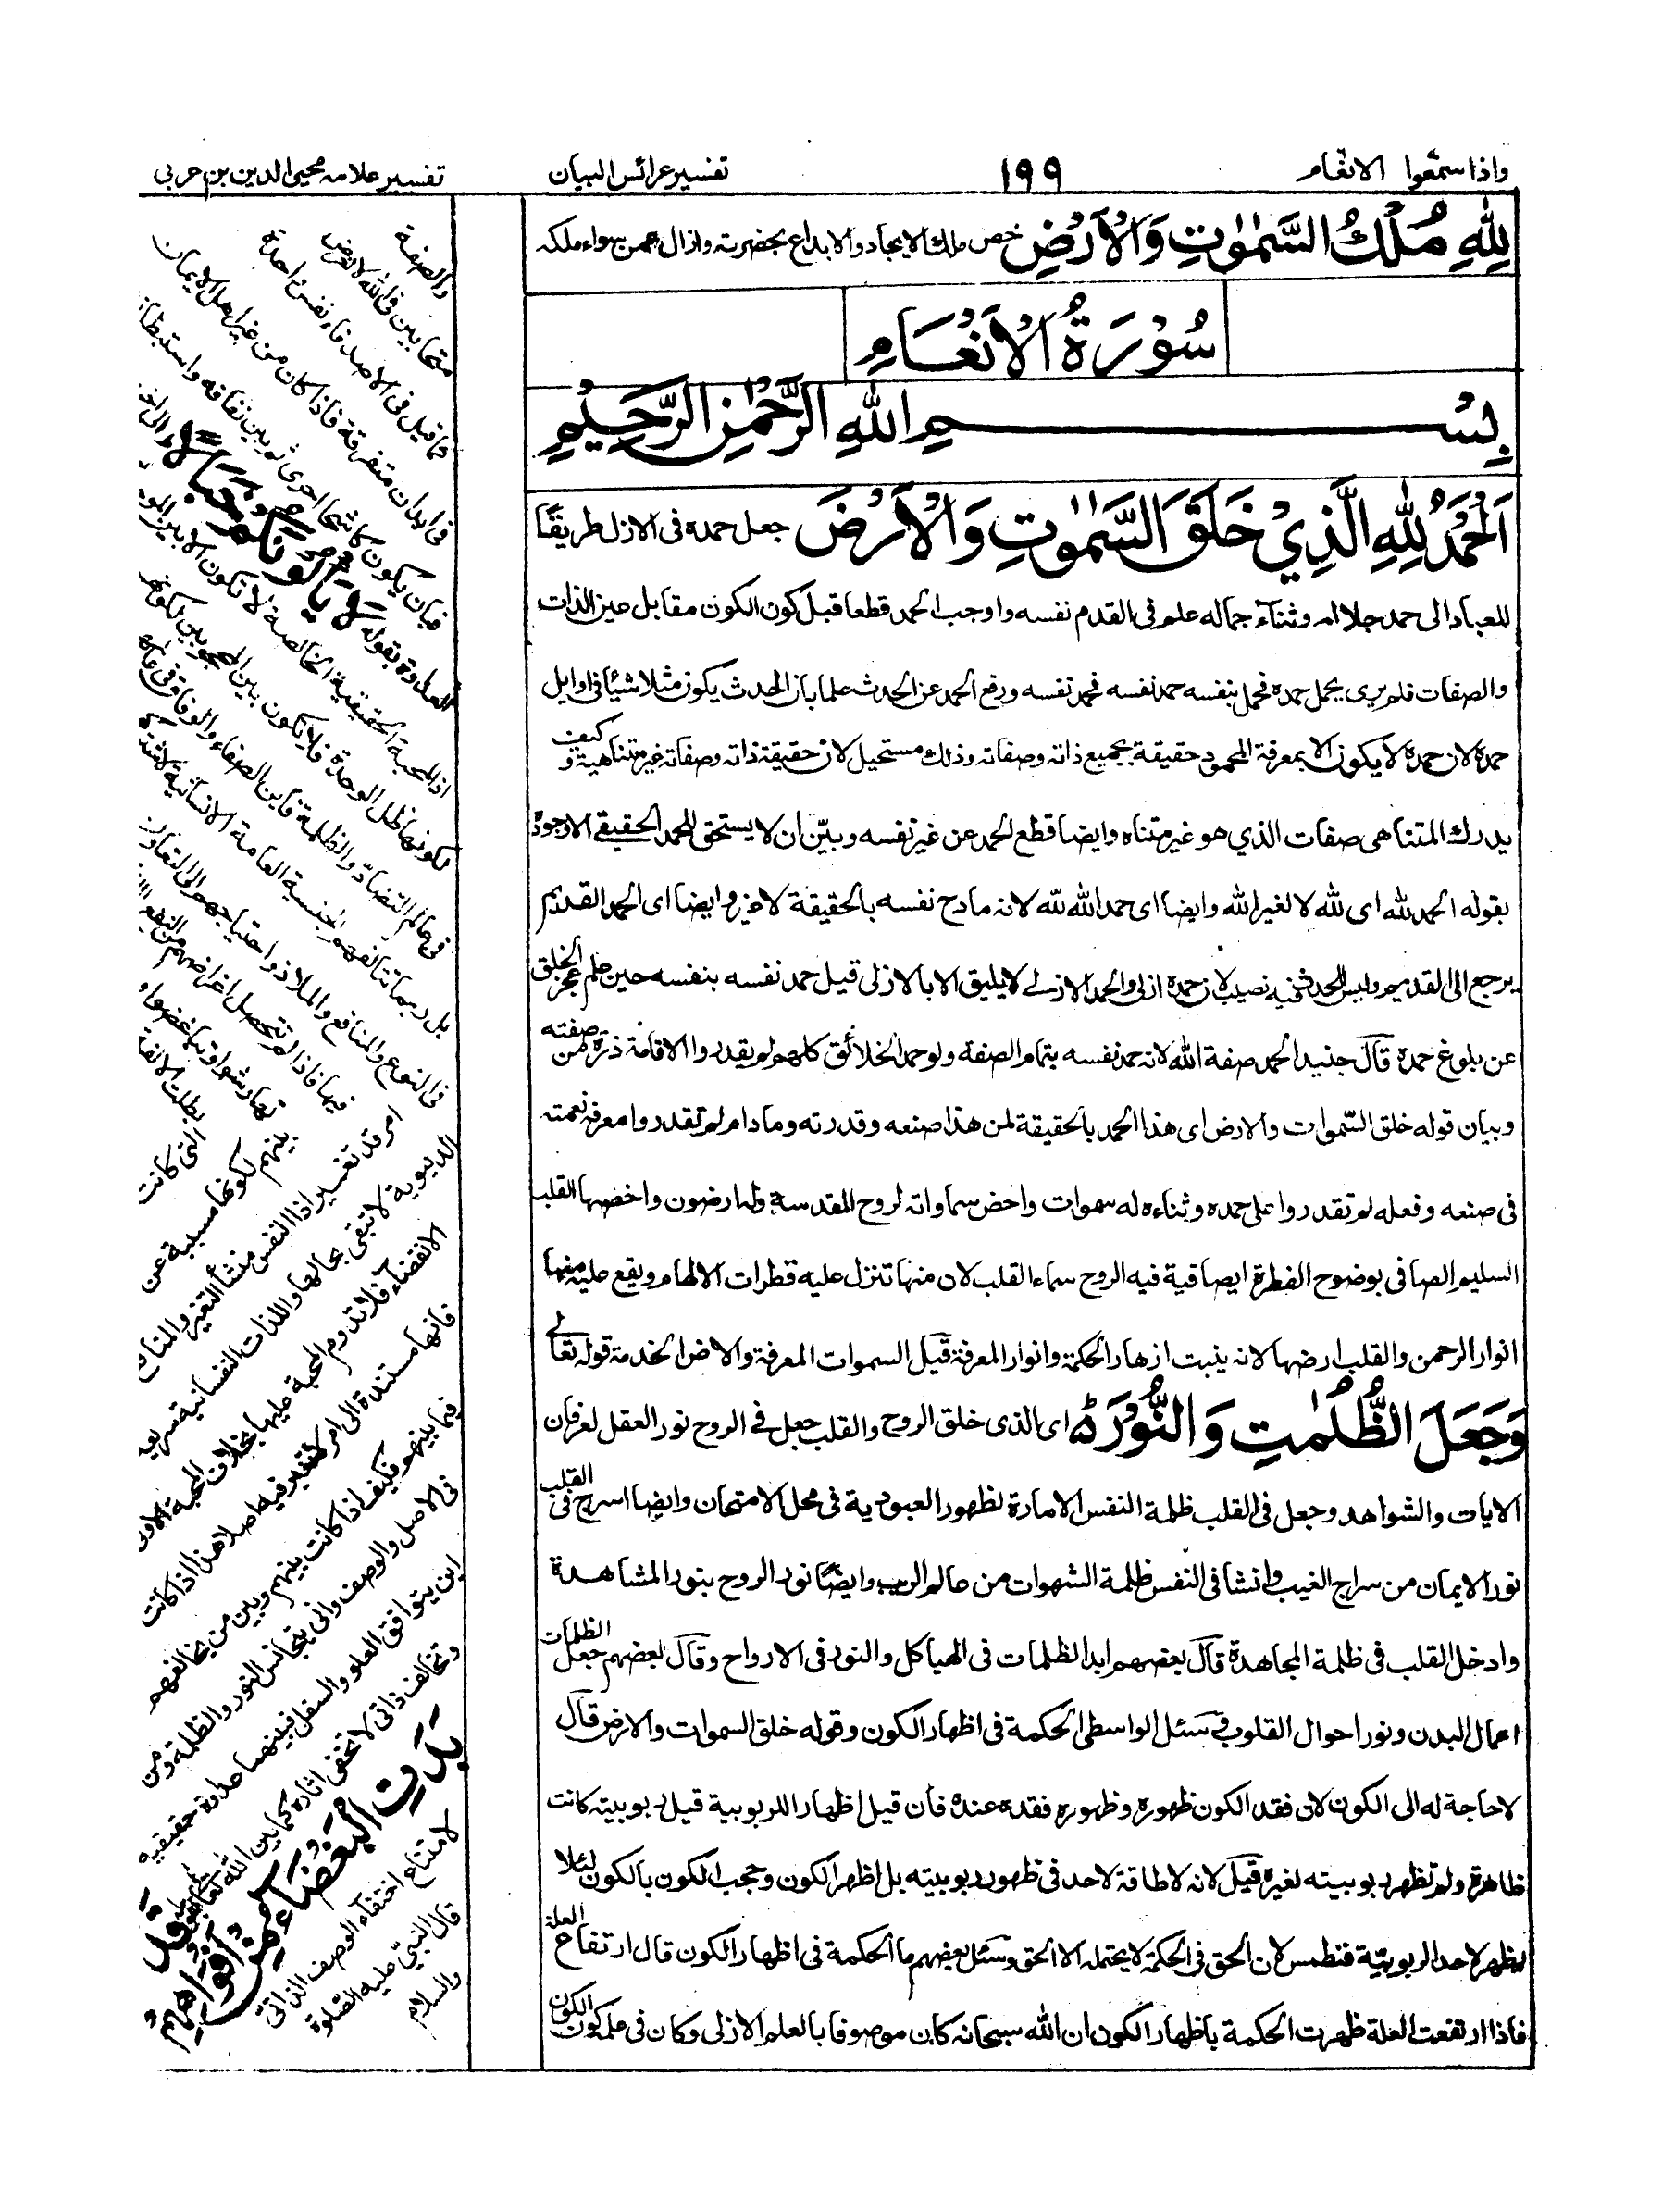 واذا سمعوا الانعام
١٩٩
تفسير عرائس البيان
تفسير علامه محيى الدين بن عربى
لِلّٰهِ مُلْكُ السَّمٰوٰتِ وَالْاَرْضِ خص ملك الايجاد والابداع بحضرته وازال عمن سواه ملكه
سُوْرَةُ الْاَنْعَامِ
بِسْمِ اللّٰهِ الرَّحْمٰنِ الرَّحِيْمِ
اَلْحَمْدُ لِلّٰهِ الَّذِيْ خَلَقَ السَّمٰوٰتِ وَالْاَرْضَ جعل حمده فى الازل طريقًا
للعباد الى حمد جلاله وثناء جماله علم فى القدم نفسه واوجب الحمد قطعا قبل كون الكون مقابل عين الذات
والصفات فلم يرى يحمل حمده فحمل بنفسه حمد نفسه فحمد نفسه ورفع الحمد عن الحدث علما بان الحدث يكون مثلا شيئا فى اوايل
حمده لان حمده لا يكون الا بمعرفة المحمود حقيقة بجميع ذاته وصفاته وذلك مستحيل لان حقيقة ذاته وصفاته غير متناهية وكيف
يدرك المتناهى صفات الذي هو غير متناه وايضا قطع الحمد عن غير نفسه وبيّن ان لا يستحق للحمد الحقيقى الا وجوده
بقوله الحمد لله اى لله لا لغير الله وايضا اى حمد الله لله لانه مادح نفسه بالحقيقة لا غير وايضا اى الحمد القديم
يرجع الى القديم وليس للحدث فيه نصيب لان حمده ازلى والحمد الازلى لا يليق الا بالازلى قيل حمد نفسه بنفسه حين علم عجز الخلق
عن بلوغ حمده قال جنيد الحمد صفة الله لانه حمد نفسه بتمام الصفة ولو حمد الخلائق كلهم لم يقدروا الاقامة ذرة من صفته
وبيان قوله خلق السّموات والارض اى هذا الحمد بالحقيقة لمن هذا صنعه وقدرته وما دام لم تقدروا معرفة نعمته
فى صنعه وفعله لم تقدروا على حمده وثناءه له سموات واخص سماواته لروح المقدسة وله ارضون واخصها القلب
السليم الصافى بوضوح الفطرة ايصاقية فيه الروح سماء القلب لان منها تنزل عليه قطرات الالهام ويقع عليه منها
انوار الرحمن والقلب ارضها لانه ينبت ازهار الحكمة وانوار المعرفة قيل السموات المعرفة والارض الخدمة قوله تعالى
وَجَعَلَ الظُّلُمٰتِ وَالنُّوْرَ اى الذى خلق الروح والقلب جعل فى الروح نور العقل لعرفان
الايات والشواهد وجعل فى القلب ظلمة النفس الامارة لظهور العبودية فى محل الامتحان وايضا اسرج فى القلب
نور الايمان من سراج الغيب وانشا فى النفس ظلمة الشهوات من عالم الريب وايضًا نور الروح بنور المشاهدة
وادخل القلب فى ظلمة المجاهدة قال بعضهم ابدا الظلمات فى الهياكل والنور فى الارواح وقال بعضهم جعل الظلمات
اعمال البدن ونور احوال القلوب سئل الواسطى الحكمة فى اظهار الكون وقوله خلق السموات والارض قال
لا حاجة له الى الكون لان فقد الكون ظهوره وظهوره فقده عنده فان قيل اظهار الربوبية قيل ربوبيته كانت
ظاهرة ولم تظهر ربوبيته لغيره قيل لانه لا طاقة لاحد فى ظهور ربوبيته بل اظهر الكون وحجب الكون بالكون لئلا
يظهر لاحد الربوبيّة فتطمس لان الحق فى الحكمة لا يحتمله الا الحق وسئل بعضهم ما الحكمة فى اظهار الكون قال ارتفاع العلة
فاذا ارتفعت العلة ظهرت الحكمة باظهار الكون ان الله سبحانه كان موصوفا بالعلم الازلى وكان فى علمه كون الكون
والصفة
متحابين فى الله لا لغرض
كما قيل فى الاصدقاء نفس واحدة
فى ابدان متفرقة فاذا كان من غير اهل الايمان
فبان يكون كاشحا احرى ثم بين نفاقه واستبطانه
العداوة بقوله لَا يَاْلُوْنَكُمْ خَبَالًا
اذ المحبة الحقيقية الخالصة لا تكون الا بين الموحدين
لكونها ظل الوحدة فلا تكون بين المحجوبين لكونهم
فى عالم التضاد والظلمة فاين الصفاء والوفاق فى عالمهم
بل ربما تتالفهم الجنسية العامة الانسانية لاشتراكهم
فى النوع والمنافع والملاذ واحتياجهم الى التعاون
فيها فاذا لم تتحصل اغراضهم من النفع
تهارشوا وتباغضوا
بطلت الالفة
التى كانت
بينهم لكونها مسببة عن
امر قد تغير اذ النفس منشأ التغير والمنافع
الدنيوية لا تبقى بحالها واللذات النفسانية سريعة
الانقضاء فلا تدوم المحبة عليها بخلاف المحبة الاولى
فانها مستندة الى امر لا تغير فيه اصلا هذا اذا كانت
فيما بينهم فكيف اذا كانت بينهم وبين من يخالفهم
فى الاصل والوصف وانى يتجانس النور والظلمة ومن
اين يتوافق العلو والسفل فبينهما عداوة حقيقية
وتخالف ذاتى لا تخفى اثاره كما بين الله تعالى بقوله قَدْ
بَدَتِ الْبَغْضَاءُ مِنْ اَفْوَاهِهِمْ
لامتناع اختفاء الوصف الذاتى
قال النبى عليه الصلوة
والسلام